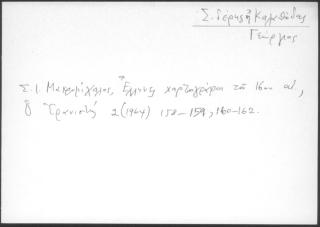 Σ. Δερης ἤ Καλαπόδας
Γεώργιος
Σ. Ι. Μακρυμίχαλος, Ἕλληνες χαρτογράφοι τοῦ 16ου αἰ.,
Ὁ Ἐρανιστής 2 (1964) 158–159, 160–162.